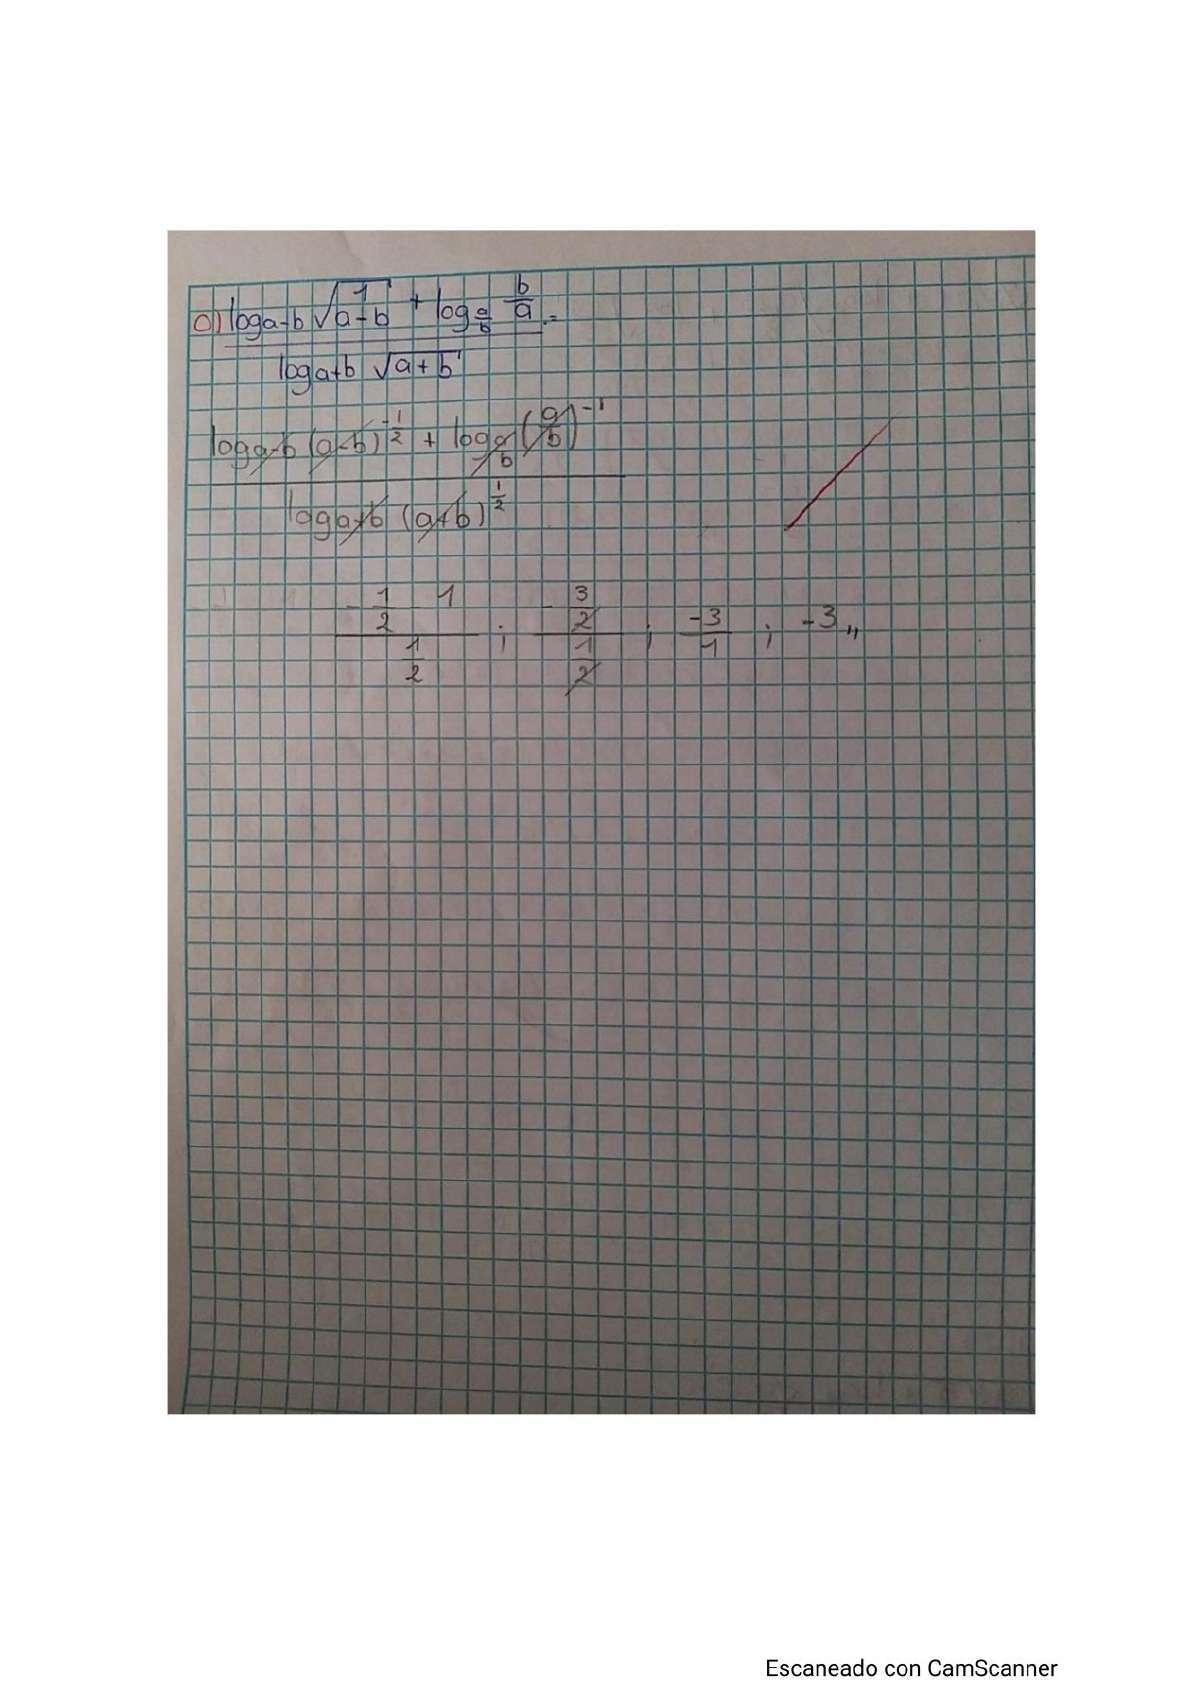 o) log a-b √(1/(a-b)) + log a/b b/a =
log a+b √(a+b)
log a-b (a-b)^-1/2 + log a/b (a/b)^-1
log a+b (a+b)^1/2
-1/2 - 1 / 1/2 ; -3/2 / 1/2 ; -3/1 ; -3,,
Escaneado con CamScanner